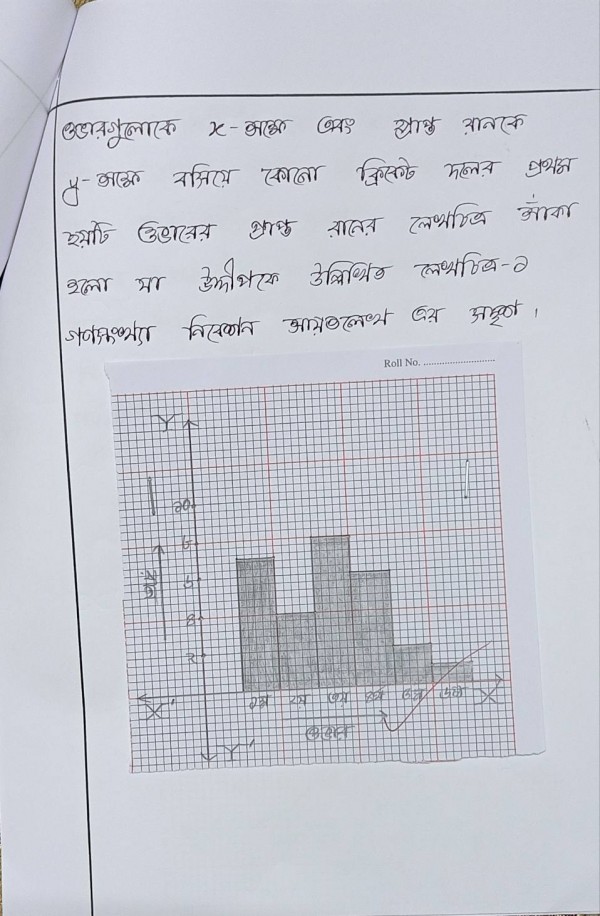 ওভারগুলোকে x-অক্ষে এবং প্রাপ্ত রানকে
y-অক্ষে বসিয়ে কোনো ক্রিকেট দলের প্রথম
ছয়টি ওভারের প্রাপ্ত রানের লেখচিত্র আঁকা
হলো যা উদ্দীপকে উল্লিখিত লেখচিত্র-১
গণসংখ্যা নিবেশন আয়তলেখ এর সদৃশ।
Roll No. ..............................
Y
১০
৮
৬
৪
২
রান
X'
১ম ২য় ৩য় ৪র্থ ৫ম ৬ষ্ঠ
X
ওভার
Y'